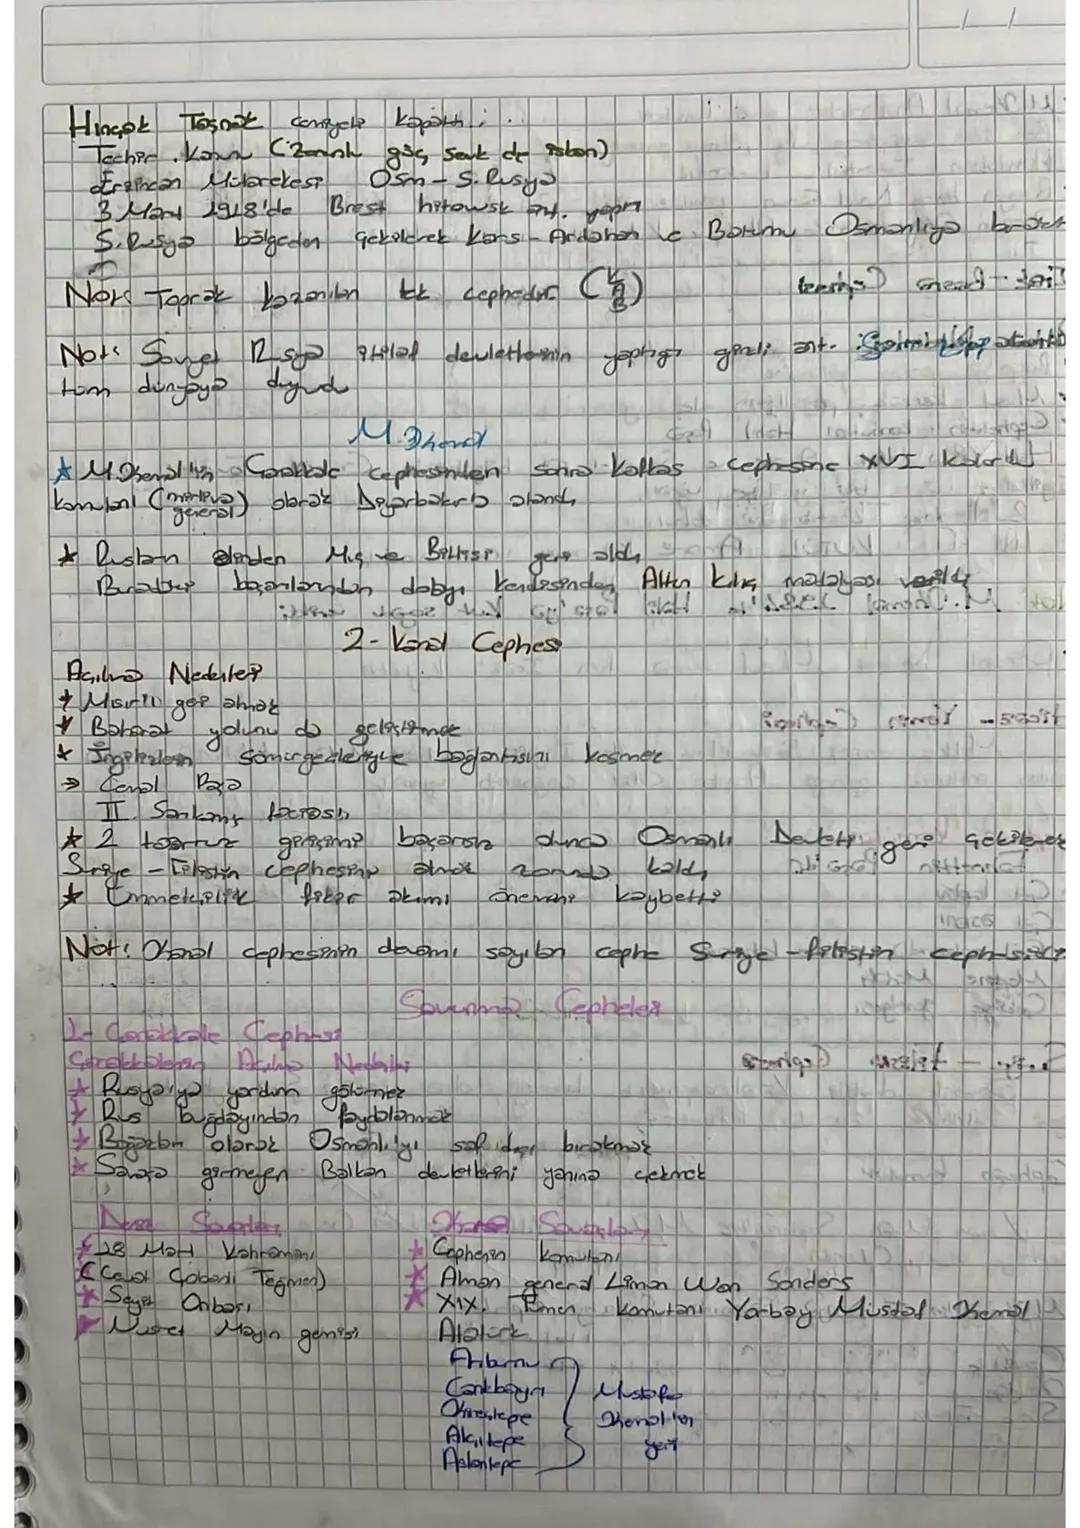 Hınçak Taşnak cemiyeti kapattı.
Techir Kanun (Zorunlu göç, sevk de iskan)
Erzincan Mütarekesi Osm - S. Rusya
3 Mart 1918'de Brest hitowsk ant. yaptı
S. Rusya bölgeden çekilerek Kars - Ardahan ve Batumu Osmanlıya bıraktı
Not: Toprak kazanılan tek cephedir (KAB)
Not: Sovyet Rusya itilaf devletlerinin yaptığı gizli ant.
tüm dünyaya duyurdu
M. Kemal
* M. Kemal'in Çanakkale cephesinden sonra Kafkas cephesine XVI kolordu
komutanı (mirliva general) olarak Diyarbakıra atandı
* Rusların elinden Muş ve Bitlisi geri aldı
Buradaki başarılarından dolayı kendisinden Altın kılıç madalyası verildi
2- Kanal Cephesi
Açılma Nedenleri
* Mısır'ı geri almak
* Baharat yolunu da geliştirmek
* İngilizlerin sömürgeleriyle bağlantısını kesmek
→ Cemal Paşa
II. Sarıkamış faciası
* 2 taarruz girişimi başarısız olunca Osmanlı Devleti geri çekilerek
Suriye - Filistin cephesini almak zorunda kaldı
* Ümmetçilik fikir akımı önemini kaybetti
Not: Kanal cephesinin devamı sayılan cephe Suriye - filistin cephesidir
Savunma Cepheler
1- Çanakkale Cephesi
Çanakkalenin Açılma Nedenleri
* Rusya'ya yardım götürmek
* Rus buğdayından faydalanmak
* Boğazları olarak Osmanlı'yı saf dışı bırakmak
* Savaşa girmeyen Balkan devletlerini yanına çekmek
Deniz Savaşları
* 18 Mart Kahramanı
(Cevat Çobanlı Teğmen)
* Seyit Onbaşı
* Nusret Mayın gemisi
Kara Savaşları
* Cephenin komutanı
* Alman general Liman Won Sanders
* XIX. Tümen komutanı Yarbay Mustafa Kemal
Atatürk
Arıburnu
Conkbayırı
Kireçtepe
Alçıtepe
Aslantepe
Mustafa
Kemal'in
yeri